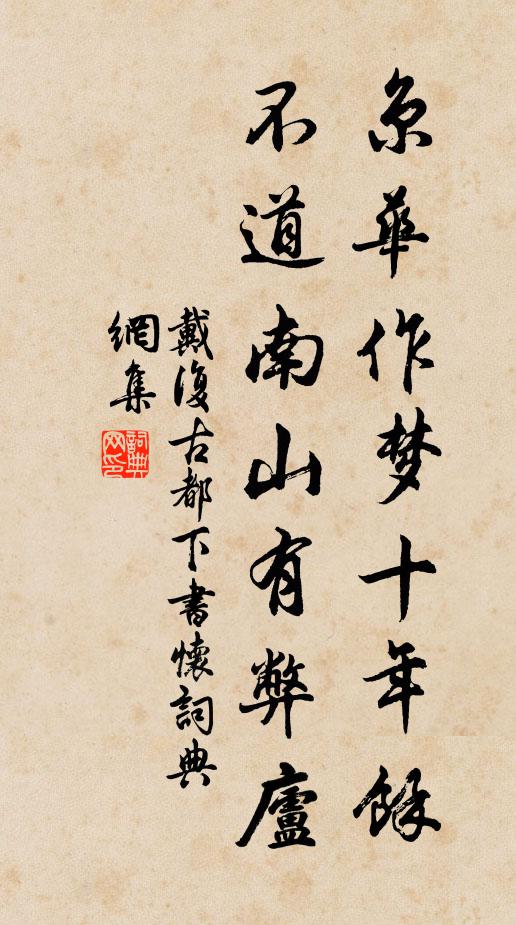 京華作梦十年餘
不道南山有弊廬
戴復古都下書懷詞典
網集
詞典
网印